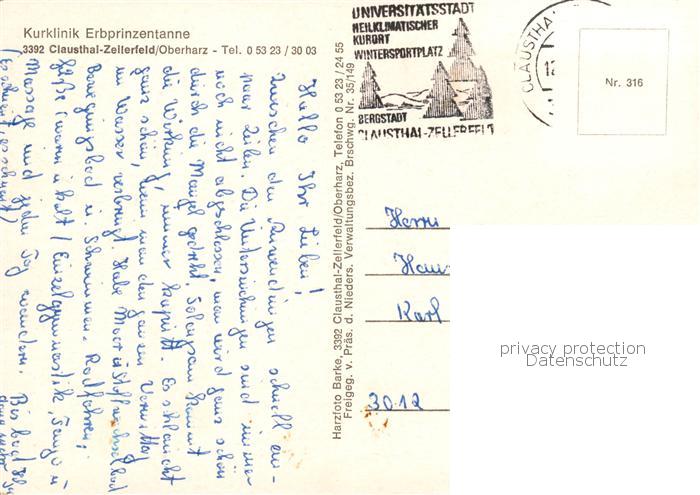 Kurklinik Erbprinzentanne
3392 Clausthal-Zellerfeld/Oberharz - Tel. 0 53 23 / 30 03
UNIVERSITÄTSSTADT
HEILKLIMATISCHER
KURORT
WINTERSPORTPLATZ
BERGSTADT
CLAUSTHAL-ZELLERFELD
CLAUSTHA
Nr. 316
Harzfoto Barke, 3392 Clausthal-Zellerfeld/Oberharz, Telefon 0 53 23 / 24 55
Freigeg. v. Präs. d. Nieders. Verwaltungsbez. Brschwg. Nr. 35/149
Hallo Ihr Lieben!
Zwischen den Anwendungen schnell ein
paar Zeilen. Die Untersuchungen sind immer
noch nicht abgeschlossen, man wird ganz schön
durch die Mangel gedreht. Solangsam kommt
die Wirkung, immer kaputt. Es schlaucht
ganz schön, wenn man den ganzen Vormittag
im Wasser verbringt. Habe Moor u Stoffwechselbad
Bewegungsbad u Schwimmen, Radfahren,
Füße warm u kalt, Einzelgymnastik, Fango u
Massage und jeden Tag wandern. Bis bald
Herrn
Karl
3012
privacy protection
Datenschutz